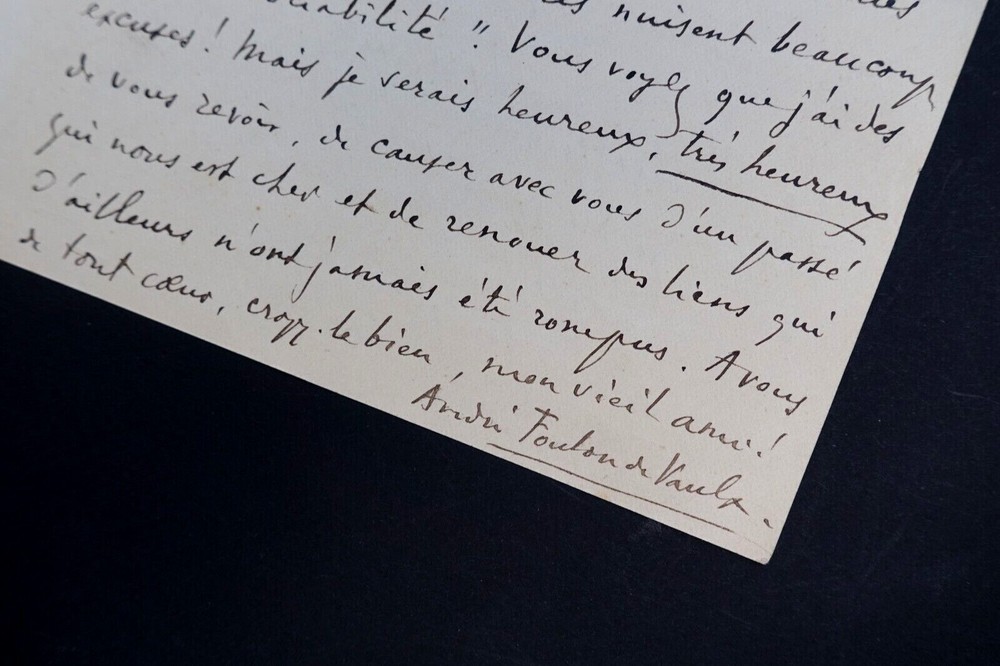 nuisent beaucoup
" Vous voyez que j'ai des
excuses ! Mais je serais heureux, très heureux
de vous revoir, de causer avec vous d'un passé
qui nous est cher et de renouer des liens qui
d'ailleurs n'ont jamais été rompus. A vous
de tout cœur, croyez-le bien, mon vieil ami !
André Foulon de Vaulx.